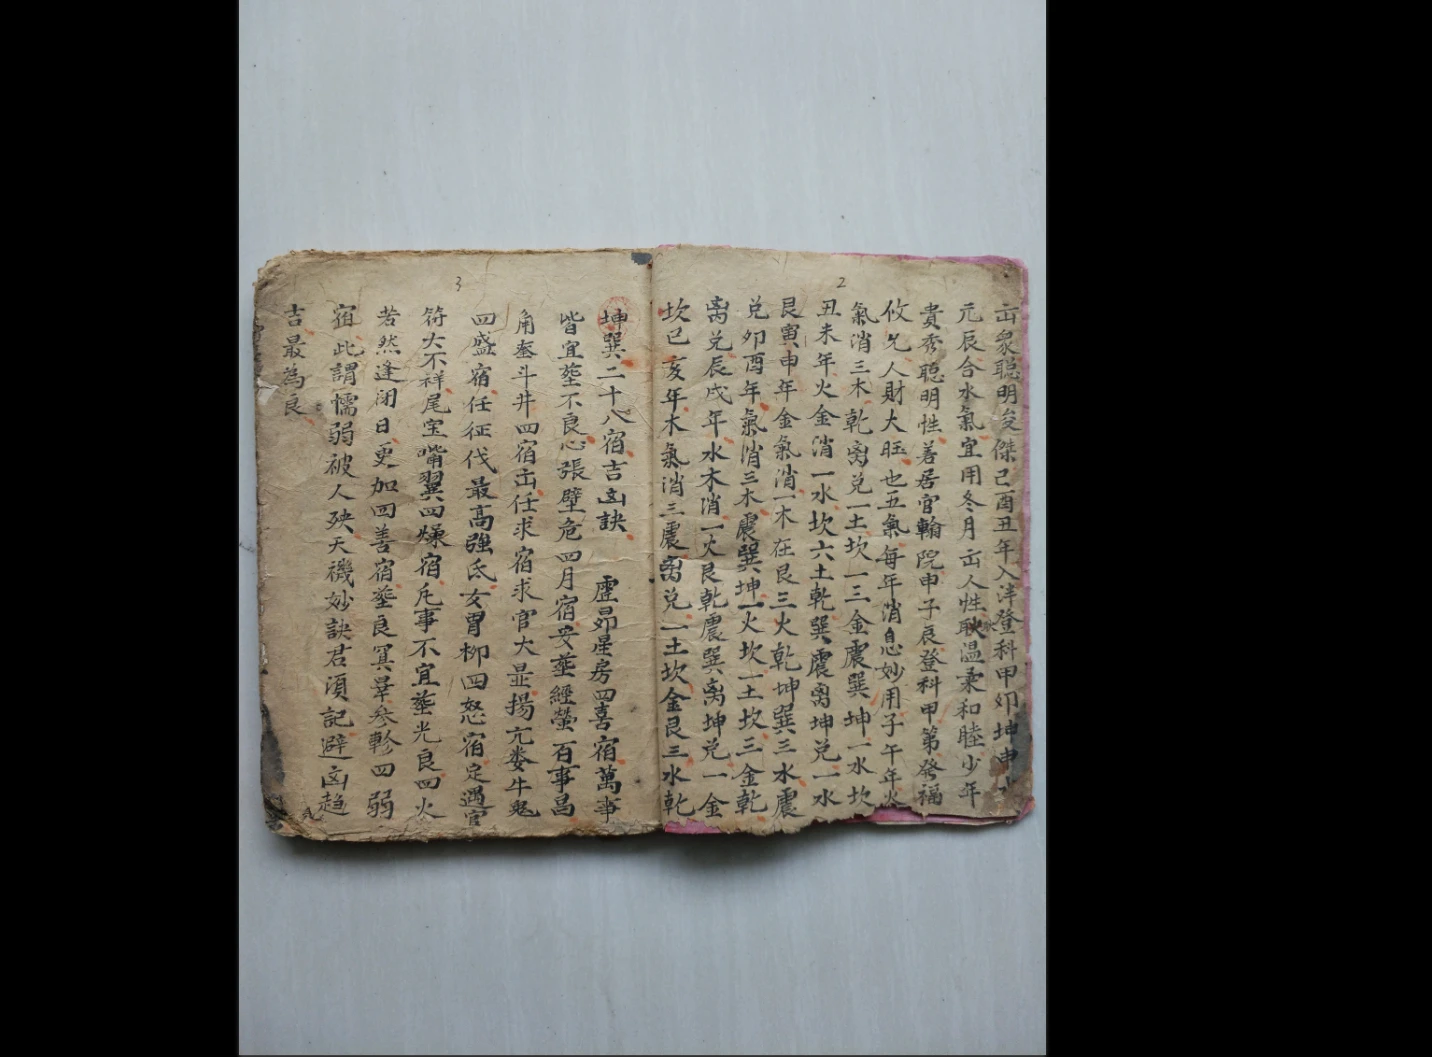 2
出衆聰明俊傑己酉丑年入泮登科甲卯坤申
元辰合水氣宜用冬月出人性耿溫柔和睦少年
貴秀聰明性善居官翰院申子辰登科甲第發福
攸久人財大旺也五氣每年消息妙用子午年火
氣消三木乾离兑一土坎一三金震巽坤一水坎
丑未年火金消一水坎六土乾巽震离坤兑一水
艮寅申年金氣消一木在艮三火乾坤巽三水震
兑卯酉年氣消三木震巽坤一火坎一土坎三金乾
离兑辰戌年水木消一火艮乾震巽离坤兑一金
坎己亥年木氣消三震离兑一土坎金艮三水乾
3
坤巽二十八宿吉凶訣 虛昴星房四喜宿萬事
皆宜塟不良心張壁危四月宿安塟經營百事昌
角奎斗井四宿出任求宿求官大显揚亢娄牛鬼
四盛宿任征伐最高強氐女胃柳四怒宿定遇官
符大不祥尾室嘴翼四燥宿凡事不宜塟光良四火
若然逢闭日更加四善宿塟良箕畢参軫四弱
宿此謂懦弱被人殃天機妙訣君須記避凶趋
吉最為良